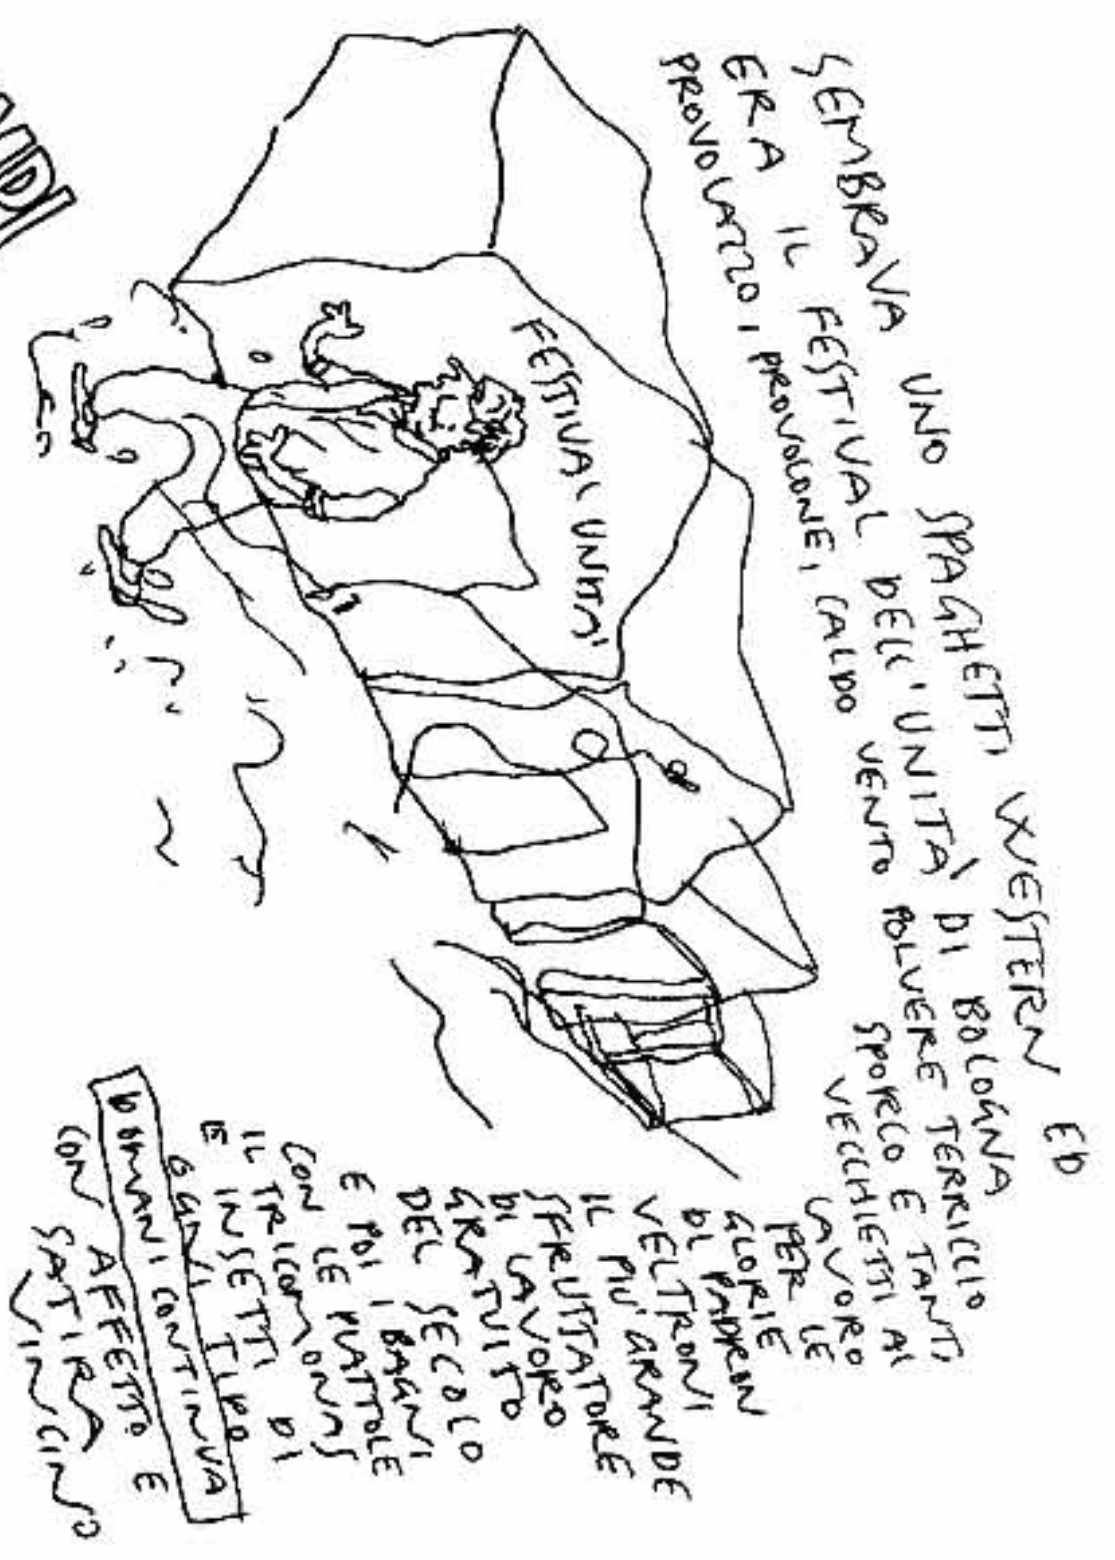 SEMBRAVA UNO SPAGHETTI WESTERN ED
ERA IL FESTIVAL DELL'UNITÀ DI BOLOGNA
PROVOLAZZO, PROVOLONE, CALDO VENTO POLVERE TERRICCIO
SPORCO E TANTI
VECCHIETTI AL
LAVORO
PER LE
GLORIE
DI PADRON
VELTRONI
IL PIU' GRANDE
SFRUTTATORE
DI LAVORO
GRATUITO
DEL SECOLO
E POI I BAGNI
CON LE PIATTOLE
IL TRICOMONAS
E INSETTI DI
OGNI TIPO
DOMANI CONTINUA
CON AFFETTO E
SATIRA
VINCINO
FESTIVAL UNITA'